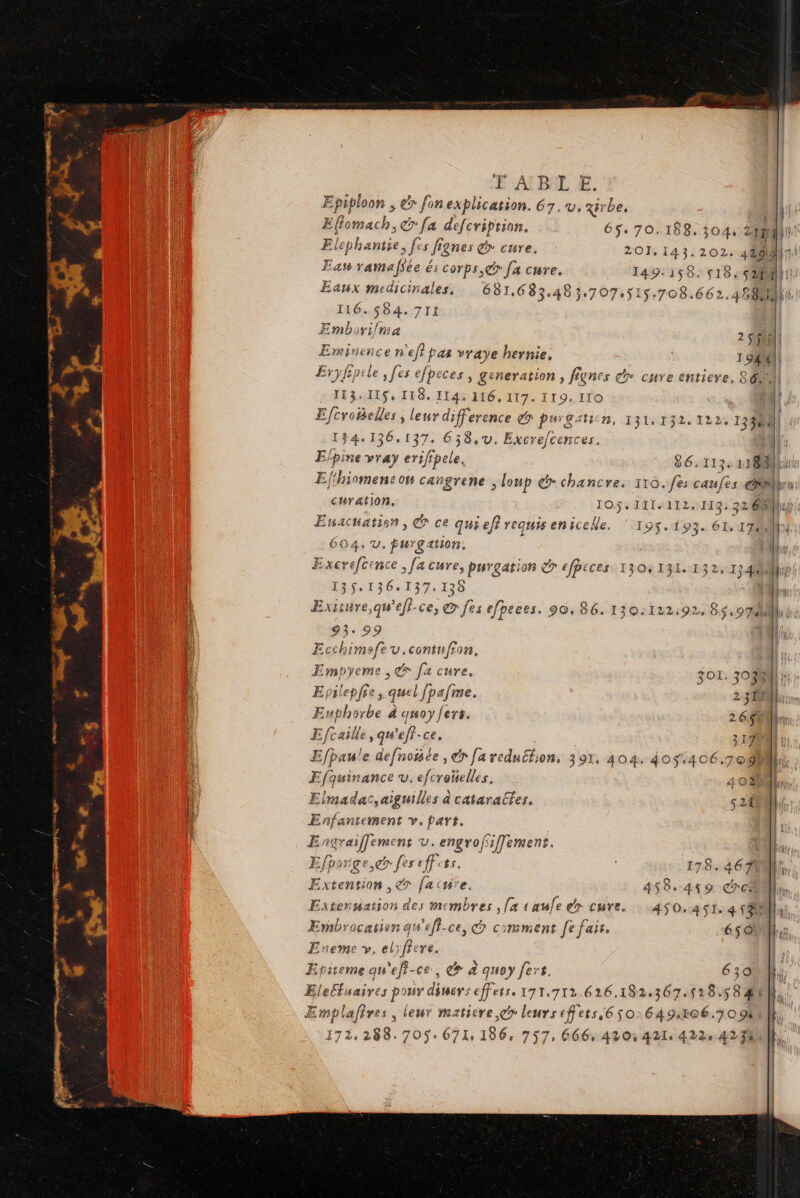 TABLE.
Epiploon , & son explication. 67. v. zirbe.
Estomach, & sa description. 65. 70. 188. 304.
Elephantie, ses signes & cure. 201. 143. 202.
Eau ramassée és corps, & sa cure. 149. 158. 518.
Eaux medicinales. 681.683.483.707.515.708.662.
116. 584. 711
Emborisma
Eminence n'est pas vraye hernie.
Erysipele , ses especes , generation , signes & cure entiere. 86.
113. 115. 118. 114. 116. 117. 119. 110
Escroüelles , leur difference & purgation. 131. 132. 122.
134. 136. 137. 638. v. Excrescences.
Espine vray erisipele. 86. 113.
Esthiomene ou cangrene , loup & chancre. 110. ses causes
curation. 105. 111. 112. 113. 32
Euacuation , & ce qui est requis en icelle. 195. 193. 61.
604. v. purgation.
Excrescence , sa cure, purgation & especes. 130. 131. 132.
135. 136. 137. 138
Exiture, qu'est-ce, & ses especes. 90. 86. 130. 122. 92. 85.
93. 99
Ecchimose v. contusion.
Empyeme , & sa cure. 301.
Epilepsie , quel spasme.
Euphorbe à quoy sert.
Escaille , qu'est-ce.
Espaule desnoüée , & sa reduction. 391. 404. 405. 406.
Esquinance v. escroüelles.
Elmadac, aiguilles à cataractes.
Enfantement v. part.
Engraissement v. engrossissement.
Esponge, & ses effets. 178.
Extention , & sa cure. 458. 459
Extenuation des membres , sa cause & cure. 450. 451.
Embrocation qu'est-ce, & comment se fait.
Eneme v. clystere.
Epiteme qu'est-ce , & à quoy sert.
Electuaires pour diuers effets. 171. 712. 626. 182. 367. 528.
Emplastres , leur matiere & leurs effets, 650. 649. 106.
172. 288. 705. 671. 186. 757. 666. 420. 421. 422.